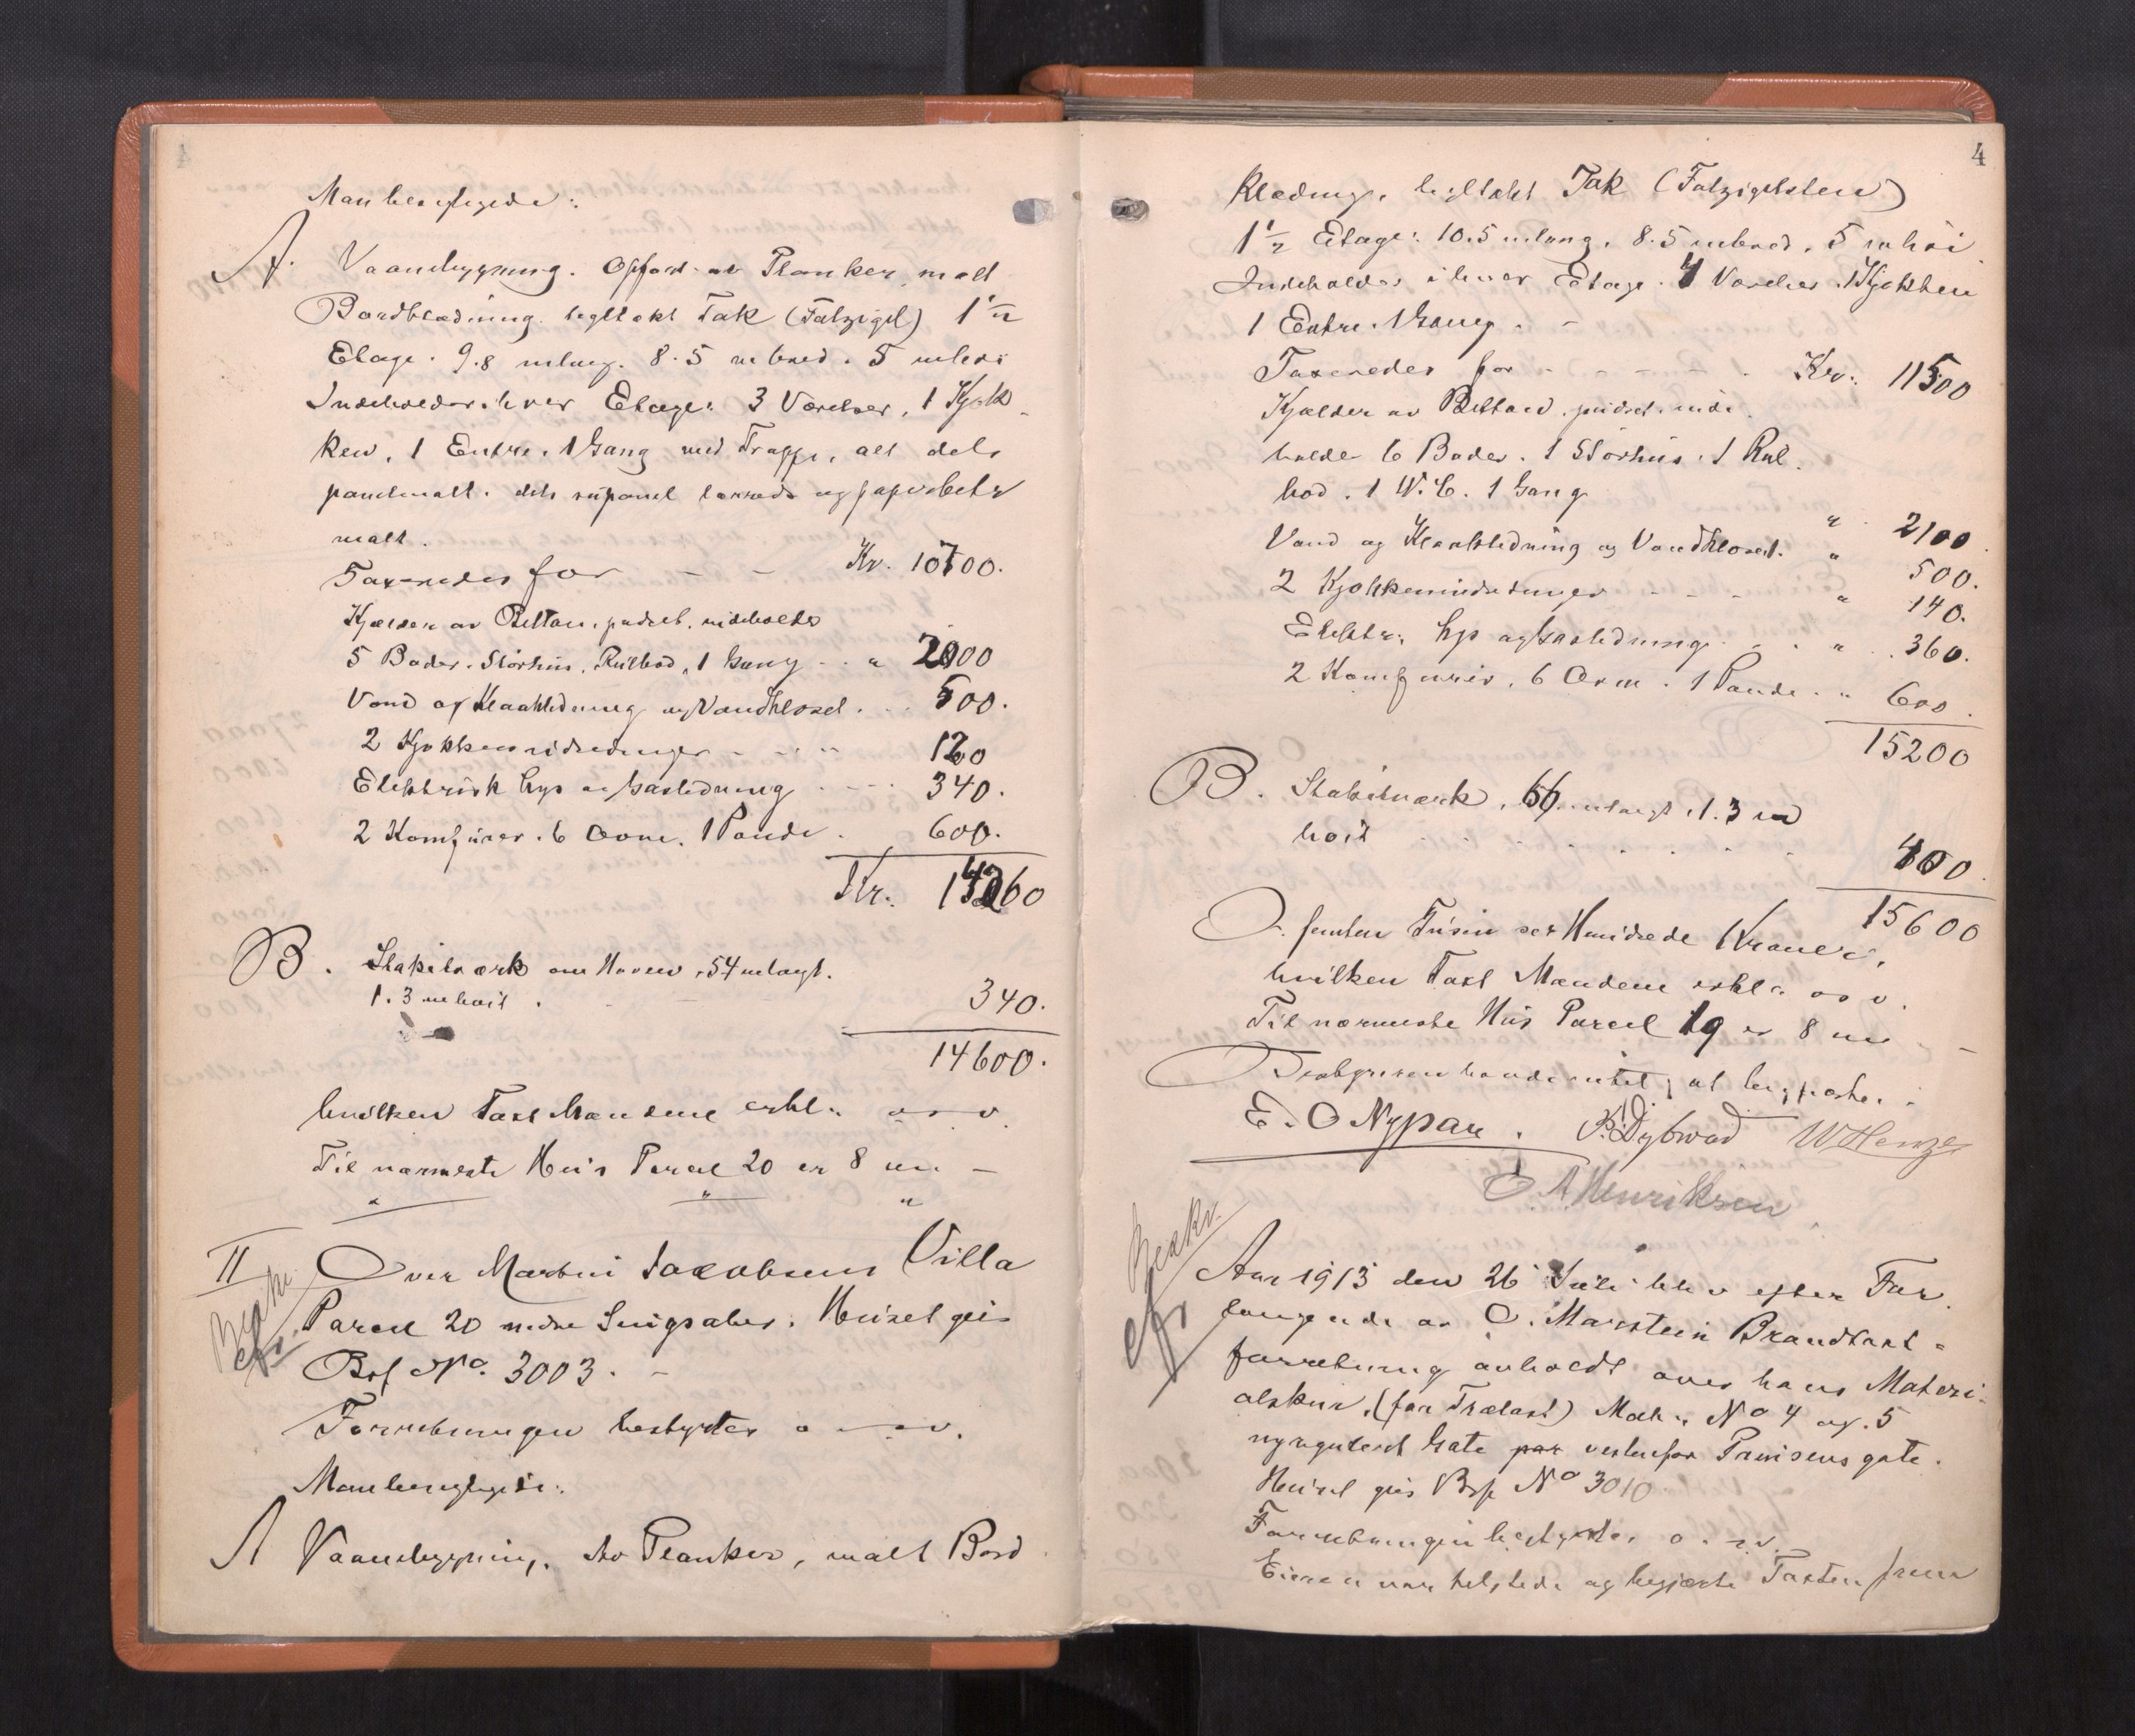 Man besigtigede:
A. Vaaningsbygning. Opført av Planker, malt
Bordklædning. tegltækt Tak (Falzigel) 1 1/2
Etage. 9.8 m lang. 8.5 m bred. 5 m høi
Indeholder i hver Etage: 3 Værelser, 1 Kjøk
ken, 1 Entre, 1 Gang med Trappe, alt dels
panelmalt. dels
malt.
Taxeredes for - - Kr. 10700.
Kjælder av Betton, pudset, indeholder
5 Boder. Störhus, Rulbod, 1 Gang - - " 2000
Vand og Kloakledning og Vandklosed. . . 500.
2 Kjøkkenindredninger - - - 120
Elektrisk Lys og Gasledning - - - 340.
2 Komfurer. 6 Ovne. 1 Pande. 600.
Kr. 14260
B. Stakitværk om Haven, 54 m langt.
1.3 m høit . 340.
14600.
hvilken Taxt Mændene erkl. o s v.
Til nærmeste Hus Parcel 20 er 8 m -
" " "
II Over Martin Jacobsens Villa
Beskr.
Parcel 20 nedre Huset gis
Brf No. 3003. -
Forretningen bestyrtes o s v.
Man besigtigede:
A Vaaningsbygning, Av Planker, malt Bord
4
klædning, tegltækt Tak (Falzigelsten)
1 1/2 Etage: 10.5 m lang, 8.5 m bred, 5 m høi
Indeholder i hver Etage. 4 Værelser 1 Kjøkken
1 Entre. 1 Gang. -
Taxeredes for - - - - - . Kr. 11500
Kjælder av Bettong, pudset, inde
holder 6 Boder. 1 Störhus. 1 Rul
bod. 1 W.C. 1 Gang
" 2100
Vand og Kloakledning og Vandklosed. " 500.
2 Kjøkkenindredninger - - - " 140.
Elektr. Lys og Gasledning . . " 360.
2 Komfurer, 6 Ovne. 1 Pande. " 600.
15200
B. Stakitværk, 66 m langt, 1.3 m
høit . . . . . . . 400
15600
O. femten Tusin sex Hundrede Kroner,
hvilken Taxt Mændene erkl. os v.
Til nærmeste Hus Parcel 19 er 8 m -
Brabgiveren havde intet at bemærke.
E. O Nypan. B. Dybwad W Henze
O A Henriksen
Beskr.
Aar 1913 den 26 Juli blev efter For
langende av O. Marstein Brandtaxt-
forretning avholdt over hans Materi-
alskur, (for Trælast) Matr. No 4 og. 5
nyreguleret Gate vestenfor Prinsens gate.
Huset gis Brf No 3010
Forretningen bestyrtes o. s.v.
Eieren var tilstede og begjærte Taxten frem